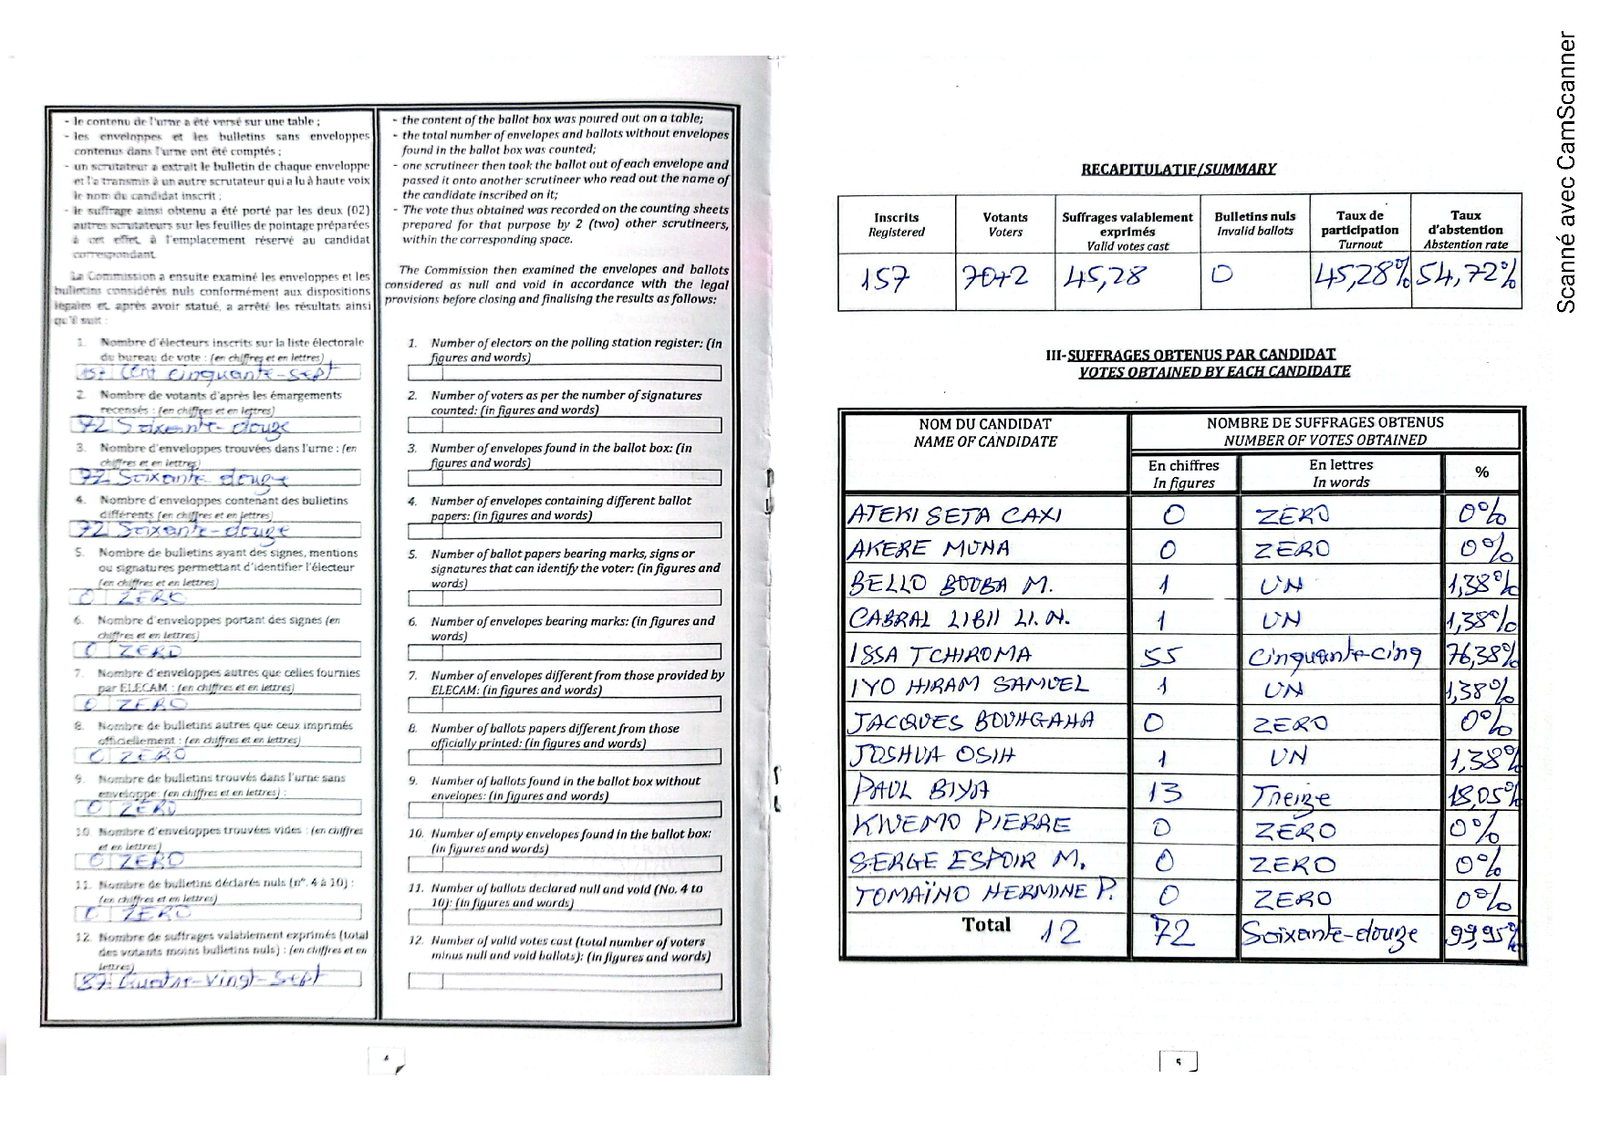 - le contenu de l'urne a été versé sur une table ;
- les enveloppes et les bulletins sans enveloppes
contenus dans l'urne ont été comptés ;
- un scrutateur a extrait le bulletin de chaque enveloppe
et l'a transmis à un autre scrutateur qui a lu à haute voix
le nom du candidat inscrit ;
- le suffrage ainsi obtenu a été porté par les deux (02)
autres scrutateurs sur les feuilles de pointage préparées
à cet effet, à l'emplacement réservé au candidat
correspondant.
La Commission a ensuite examiné les enveloppes et les
bulletins considérés nuls conformément aux dispositions
légales et, après avoir statué, a arrêté les résultats ainsi
qu'il suit :
1. Nombre d'électeurs inscrits sur la liste électorale
du bureau de vote : (en chiffres et en lettres)
157 Cent cinquante-sept
2. Nombre de votants d'après les émargements
recensés : (en chiffres et en lettres)
72 Soixante-douze
3. Nombre d'enveloppes trouvées dans l'urne : (en
chiffres et en lettres)
72 Soixante douze
4. Nombre d'enveloppes contenant des bulletins
différents (en chiffres et en lettres)
72 Soixante-douze
5. Nombre de bulletins ayant des signes, mentions
ou signatures permettant d'identifier l'électeur
(en chiffres et en lettres)
0 ZERO
6. Nombre d'enveloppes portant des signes (en
chiffres et en lettres)
0 ZERO
7. Nombre d'enveloppes autres que celles fournies
par ELECAM : (en chiffres et en lettres)
0 ZERO
8. Nombre de bulletins autres que ceux imprimés
officiellement : (en chiffres et en lettres)
0 ZERO
9. Nombre de bulletins trouvés dans l'urne sans
enveloppe: (en chiffres et en lettres) :
0 ZERO
10. Nombre d'enveloppes trouvées vides : (en chiffres
et en lettres)
0 ZERO
11. Nombre de bulletins déclarés nuls (n°. 4 à 10) :
(en chiffres et en lettres)
0 ZERO
12. Nombre de suffrages valablement exprimés (total
des votants moins bulletins nuls) : (en chiffres et en
lettres)
87 Quatre-vingt-sept
- the content of the ballot box was poured out on a table;
- the total number of envelopes and ballots without envelopes
found in the ballot box was counted;
- one scrutineer then took the ballot out of each envelope and
passed it onto another scrutineer who read out the name of
the candidate inscribed on it;
- The vote thus obtained was recorded on the counting sheets
prepared for that purpose by 2 (two) other scrutineers,
within the corresponding space.
The Commission then examined the envelopes and ballots
considered as null and void in accordance with the legal
provisions before closing and finalising the results as follows:
1. Number of electors on the polling station register: (in
figures and words)
2. Number of voters as per the number of signatures
counted: (in figures and words)
3. Number of envelopes found in the ballot box: (in
figures and words)
4. Number of envelopes containing different ballot
papers: (in figures and words)
5. Number of ballot papers bearing marks, signs or
signatures that can identify the voter: (in figures and
words)
6. Number of envelopes bearing marks: (in figures and
words)
7. Number of envelopes different from those provided by
ELECAM: (in figures and words)
8. Number of ballots papers different from those
officially printed: (in figures and words)
9. Number of ballots found in the ballot box without
envelopes: (in figures and words)
10. Number of empty envelopes found in the ballot box:
(in figures and words)
11. Number of ballots declared null and void (No. 4 to
10): (in figures and words)
12. Number of valid votes cast (total number of voters
minus null and void ballots): (in figures and words)
4
RECAPITULATIF/SUMMARY
Inscrits Registered | Votants Voters | Suffrages valablement exprimés Valid votes cast | Bulletins nuls Invalid ballots | Taux de participation Turnout | Taux d'abstention Abstention rate
157 | 70+2 | 45,28 | 0 | 45,28% | 54,72%
III-SUFFRAGES OBTENUS PAR CANDIDAT
VOTES OBTAINED BY EACH CANDIDATE
NOM DU CANDIDAT NOMBRE DE SUFFRAGES OBTENUS
NAME OF CANDIDATE NUMBER OF VOTES OBTAINED
En chiffres En lettres %
In figures In words
ATEKI SETA CAXI 0 ZERO 0%
AKERE MUNA 0 ZERO 0%
BELLO BOUBA M. 1 UN 1,38%
CABRAL LIBII LI.N. 1 UN 1,38%
ISSA TCHIROMA 55 Cinquante-cinq 76,38%
IYO HIRAM SAMUEL 1 UN 1,38%
JACQUES BOUHGAHA 0 ZERO 0%
JOSHUA OSIH 1 UN 1,38%
PAUL BIYA 13 Treize 18,05%
KWEMO PIERRE 0 ZERO 0%
SERGE ESPOIR M. 0 ZERO 0%
TOMAÏNO HERMINE P. 0 ZERO 0%
Total 12 72 Soixante-douze 99,95%
5
Scanné avec CamScanner